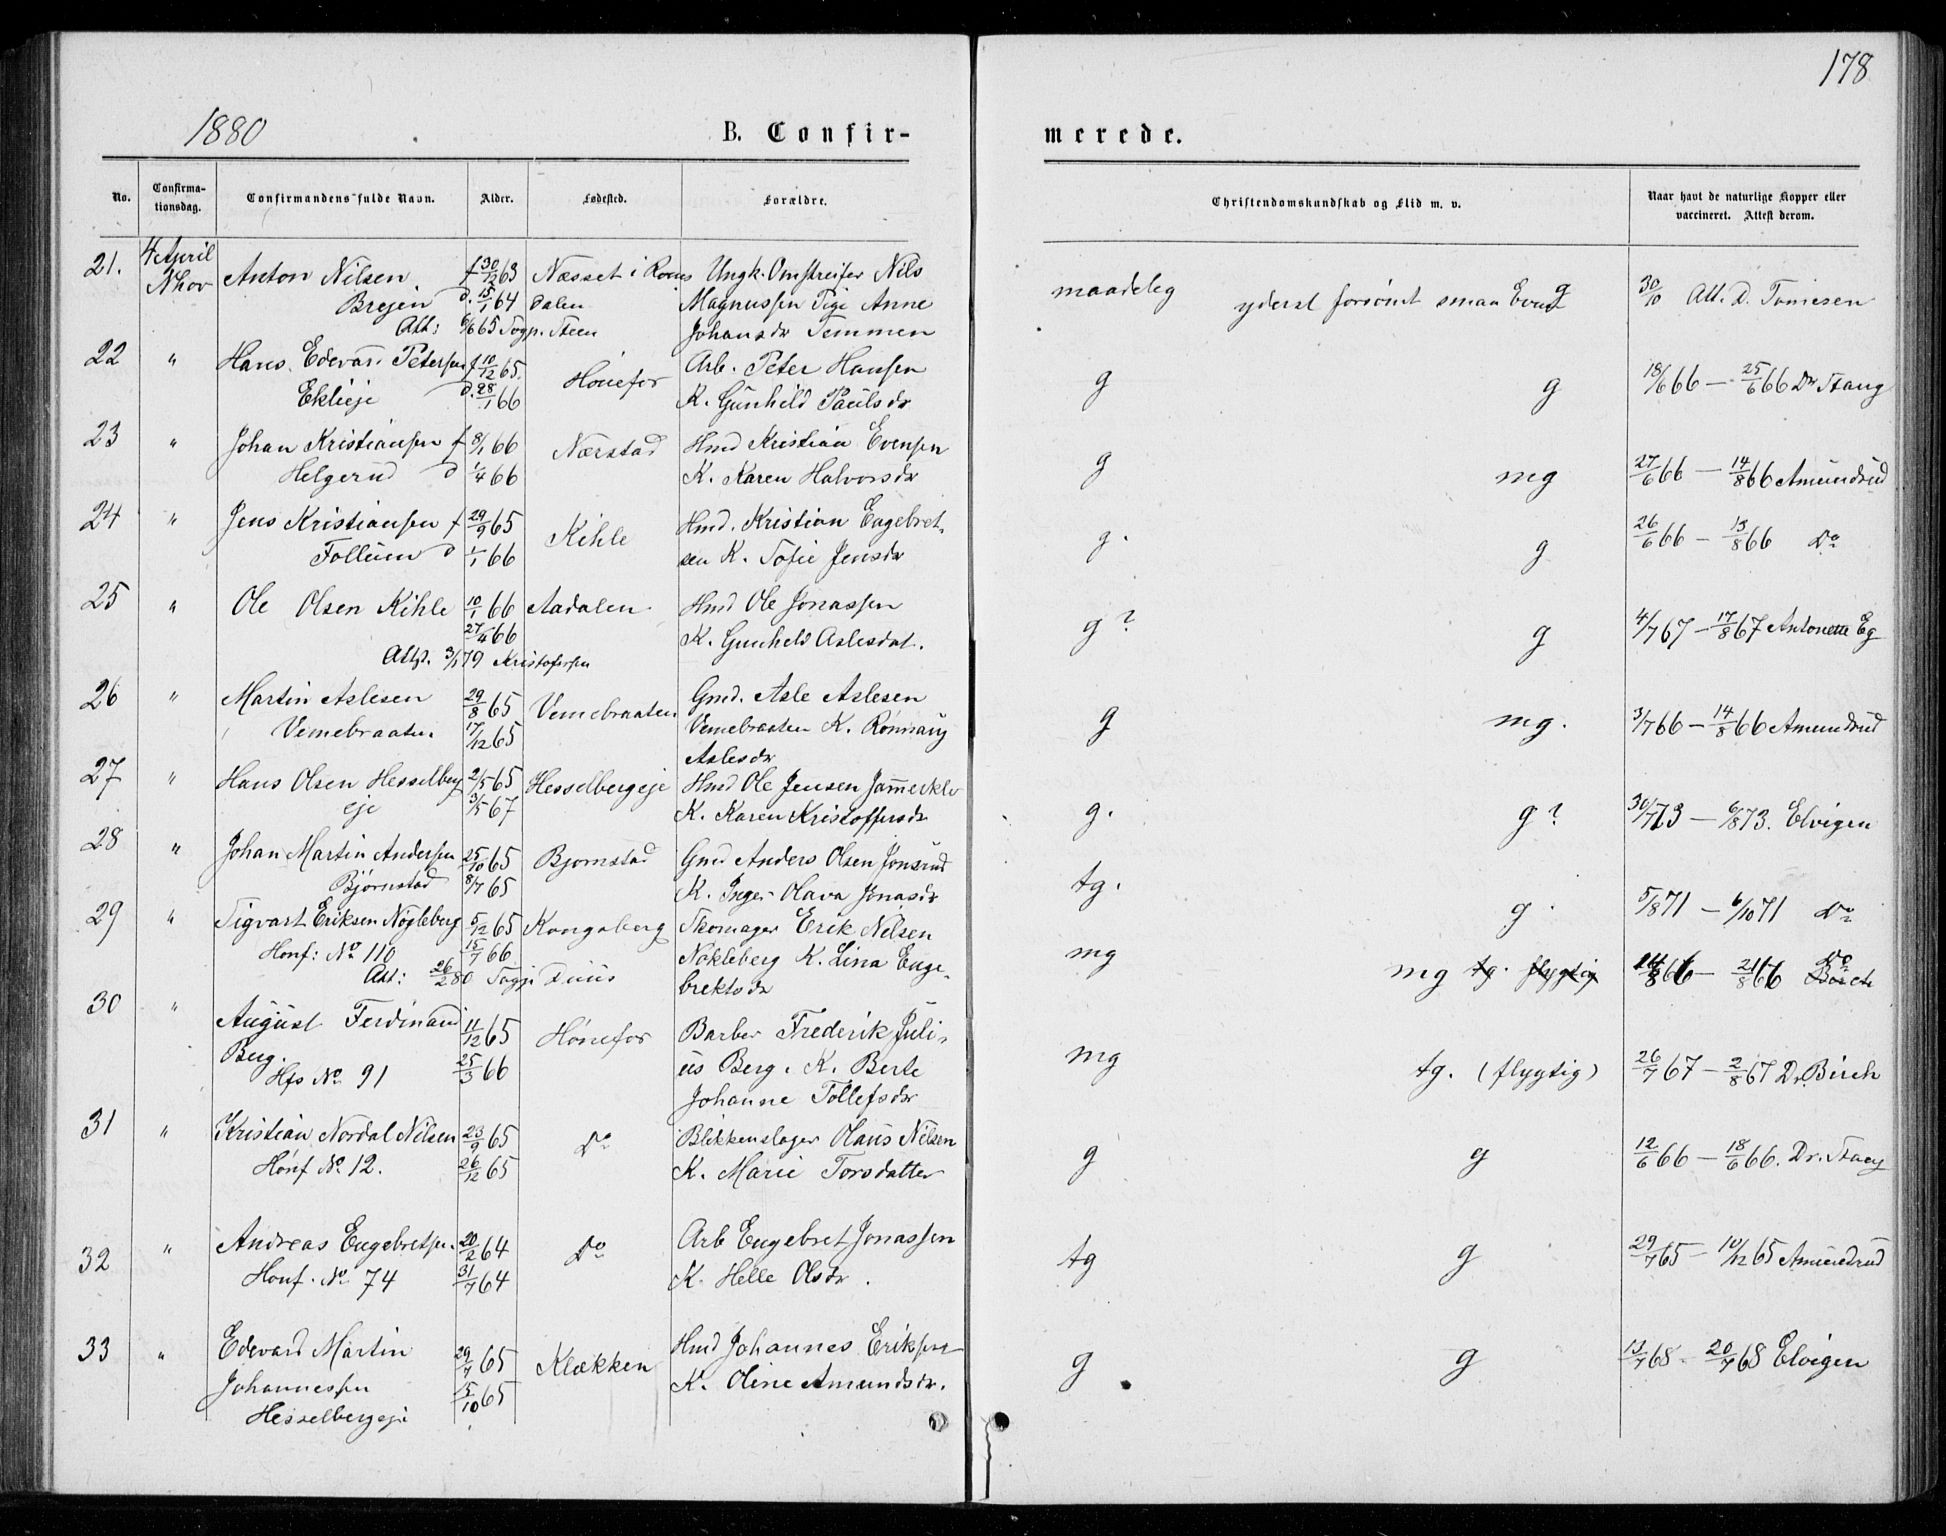 178
1880
B. Confir-
merede.
No.
Confirma-
tionsdag.
Confirmandens fulde Navn.
Alder.
Fødested.
Forældre.
Christendomskundskab og Flid m. v.
Naar havt de naturlige Kopper eller
vaccineret. Attest derom.
21. 4 April Anton Nilsen f 30/12 63 Næsset i Roms Ungk. Omstreifer Nils
Nhov Brejen d. 15/1 64 dalen Magnussen Pige Anne
Att: 6/6 65 Sogp. Steen Johansdr Temmen
maadeleg yderst forsømt smaa Evner g 30/10 Att. D. Tomesen
22 " Hans Edevart Petersen f 10/12 65. Hönefos Arb. Peter Hansen
Eklieje d. 28/1 66 K. Gunhild Paulsdr
g g 18/6 66 — 25/6 66 Dr Stang
23 " Johan Kristiansen f 8/1 66 Nærstad Hmd Kristian Evensen
Helgerud d 1/4 66 K. Karen Halvorsdr
g mg 27/6 66 — 14/8 66 Amundrud
24 " Jens Kristiansen f 29/9 65 Kihle Hmd. Kristian Engebret-
Follum d 1/1 66 sen K. Sofie Jensdr
g. g 26/6 66 — 13/8 66 Do
25 " Ole Olsen Kihle 10/1 66 Aadalen Hmd Ole Jonassen
27/4 66 K. Gunhild Aslesdat.
Attst. 3/1 79 Kristofersen
g? g 4/7 67 — 17/8 67 Antonette Eg
26 " Martin Aslesen 29/8 65 Vemebraaten Gmd. Asle Aslesen
Vemebraaten 17/12 65 Vemebraaten K. Rönnaug
Aslesdr
g mg. 3/7 66 — 14/8 66 Amundrud
27 " Hans Olsen Hesselberg 2/5 65 Hesselbergeje Hmd Ole Jensen Jammerklv
eje 3/5 67 K. Karen Kristoffersdr
g. g? 30/7 73 — 6/8 73. Elvigen
28 " Johan Martin Andersen 25/10 65 Bjornstad Gmd Anders Olsen Jonsrud
Bjørnstad 8/7 65 K. Inger Olava Jonasdr
tg. g. 5/8 71 — 6/10 71 Do
29 " Sigvart Eriksen Nögleberg 5/12 65 Kongsberg Skomager Erik Nilsen
Honf: No 110 15/7 66 Nokleberg K. Lina Enge-
Att: 26/2 80 Sogpr brektsdr
mg mg tg. flygtig 14/8 66 — 21/8 66 Do
30 " August Ferdinand 11/12 65 Hönefos Barber Frederik Juli-
Berg. 25/3 66 us Berg. K. Berte
Hfs No 91 Johanne Tollefsdr
mg tg. (flygtig) 26/7 67 — 2/8 67 Dr. Birch
31 " Kristian Nordal Nilsen 23/9 65 Do Blikkenslager Olaus Nilsen
Hönf No 12. 26/12 65 K. Marie Torsdatter
g g 12/6 66 — 18/6 66. Dr. Stang
32 " Andreas Engebretsen. 20/2 64 Do Arb Engebret Jonassen
Honf. No 74 31/7 64 K. Helle Olsdr.
tg g 29/7 65 — 10/12 65 Amundrud
33 " Edevard Martin 29/7 65 Klækken Hmd Johannes Eriksen
Johannessen 15/10 65 K. Oline Amundsdr.
Hesselbergeje
g g 13/7 68 — 20/7 68 Elvigen